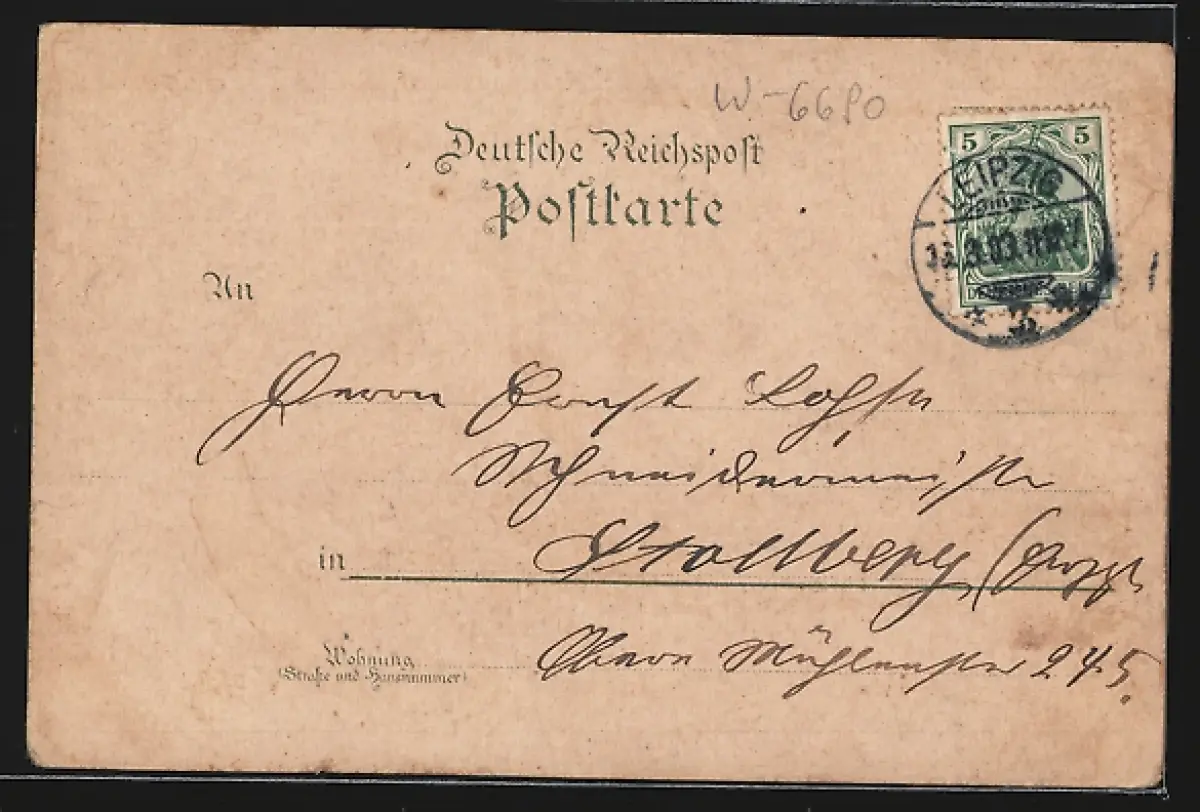 W-6690
Deutsche Reichspost
Postkarte
5 5
LEIPZIG
.3.03.
An
Herrn Ernst Lohse
Schneidermeister
in Stollberg (Erzgb
Wohnung
(Straße und Hausnummer)
Obere Mühlenstr 245.